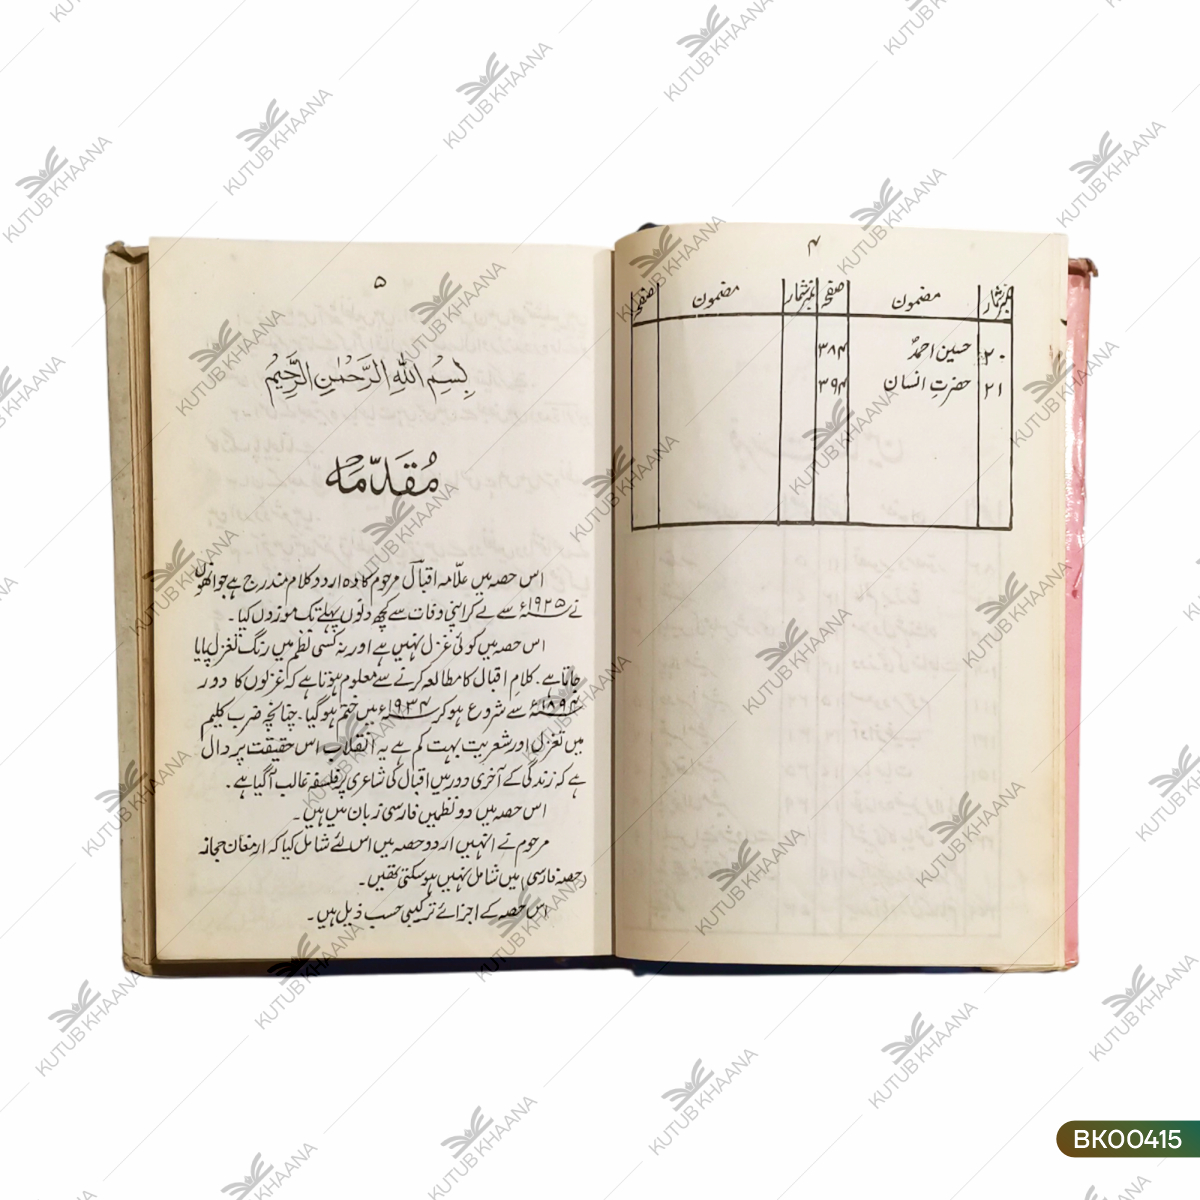 ۴
نمبرشمار مضمون صفحہ نمبرشمار مضمون صفحہ
۲۰ حسین احمدؒ ۳۸۴
۲۱ حضرتِ انسان ۳۹۴
۵
بِسْمِ اللهِ الرَّحْمٰنِ الرَّحِيْمِ
مُقَدِّمَہ
اس حصہ میں علّامہ اقبالؒ مرحوم کا وہ اردو کلام مندرج ہے جو انھوں
نے ۱۹۲۵ء سے لے کر اپنی وفات سے کچھ دنوں پہلے تک موزوں کیا۔
اس حصہ میں کوئی غزل نہیں ہے اور نہ کسی نظم میں رنگ تغزل پایا
جاتا ہے۔ کلامِ اقبال کا مطالعہ کرنے سے معلوم ہوتا ہے کہ غزلوں کا دور
۱۸۹۴ء سے شروع ہو کر ۱۹۳۴ء میں ختم ہو گیا۔ چنانچہ ضرب کلیم
میں تغزل اور شعریت بہت کم ہے یہ انقلاب اس حقیقت پر دال
ہے کہ زندگی کے آخری دور میں اقبال کی شاعری پر فلسفہ غالب آگیا ہے۔
اس حصہ میں دو نظمیں فارسی زبان میں ہیں۔
مرحوم نے انہیں اردو حصہ میں اس لئے شامل کیا کہ ارمغان حجاز
(حصہ فارسی) میں شامل نہیں ہو سکتی تھیں۔
اس حصہ کے اجزائے ترکیبی حسب ذیل ہیں۔
KUTUB KHAANA
BK00415